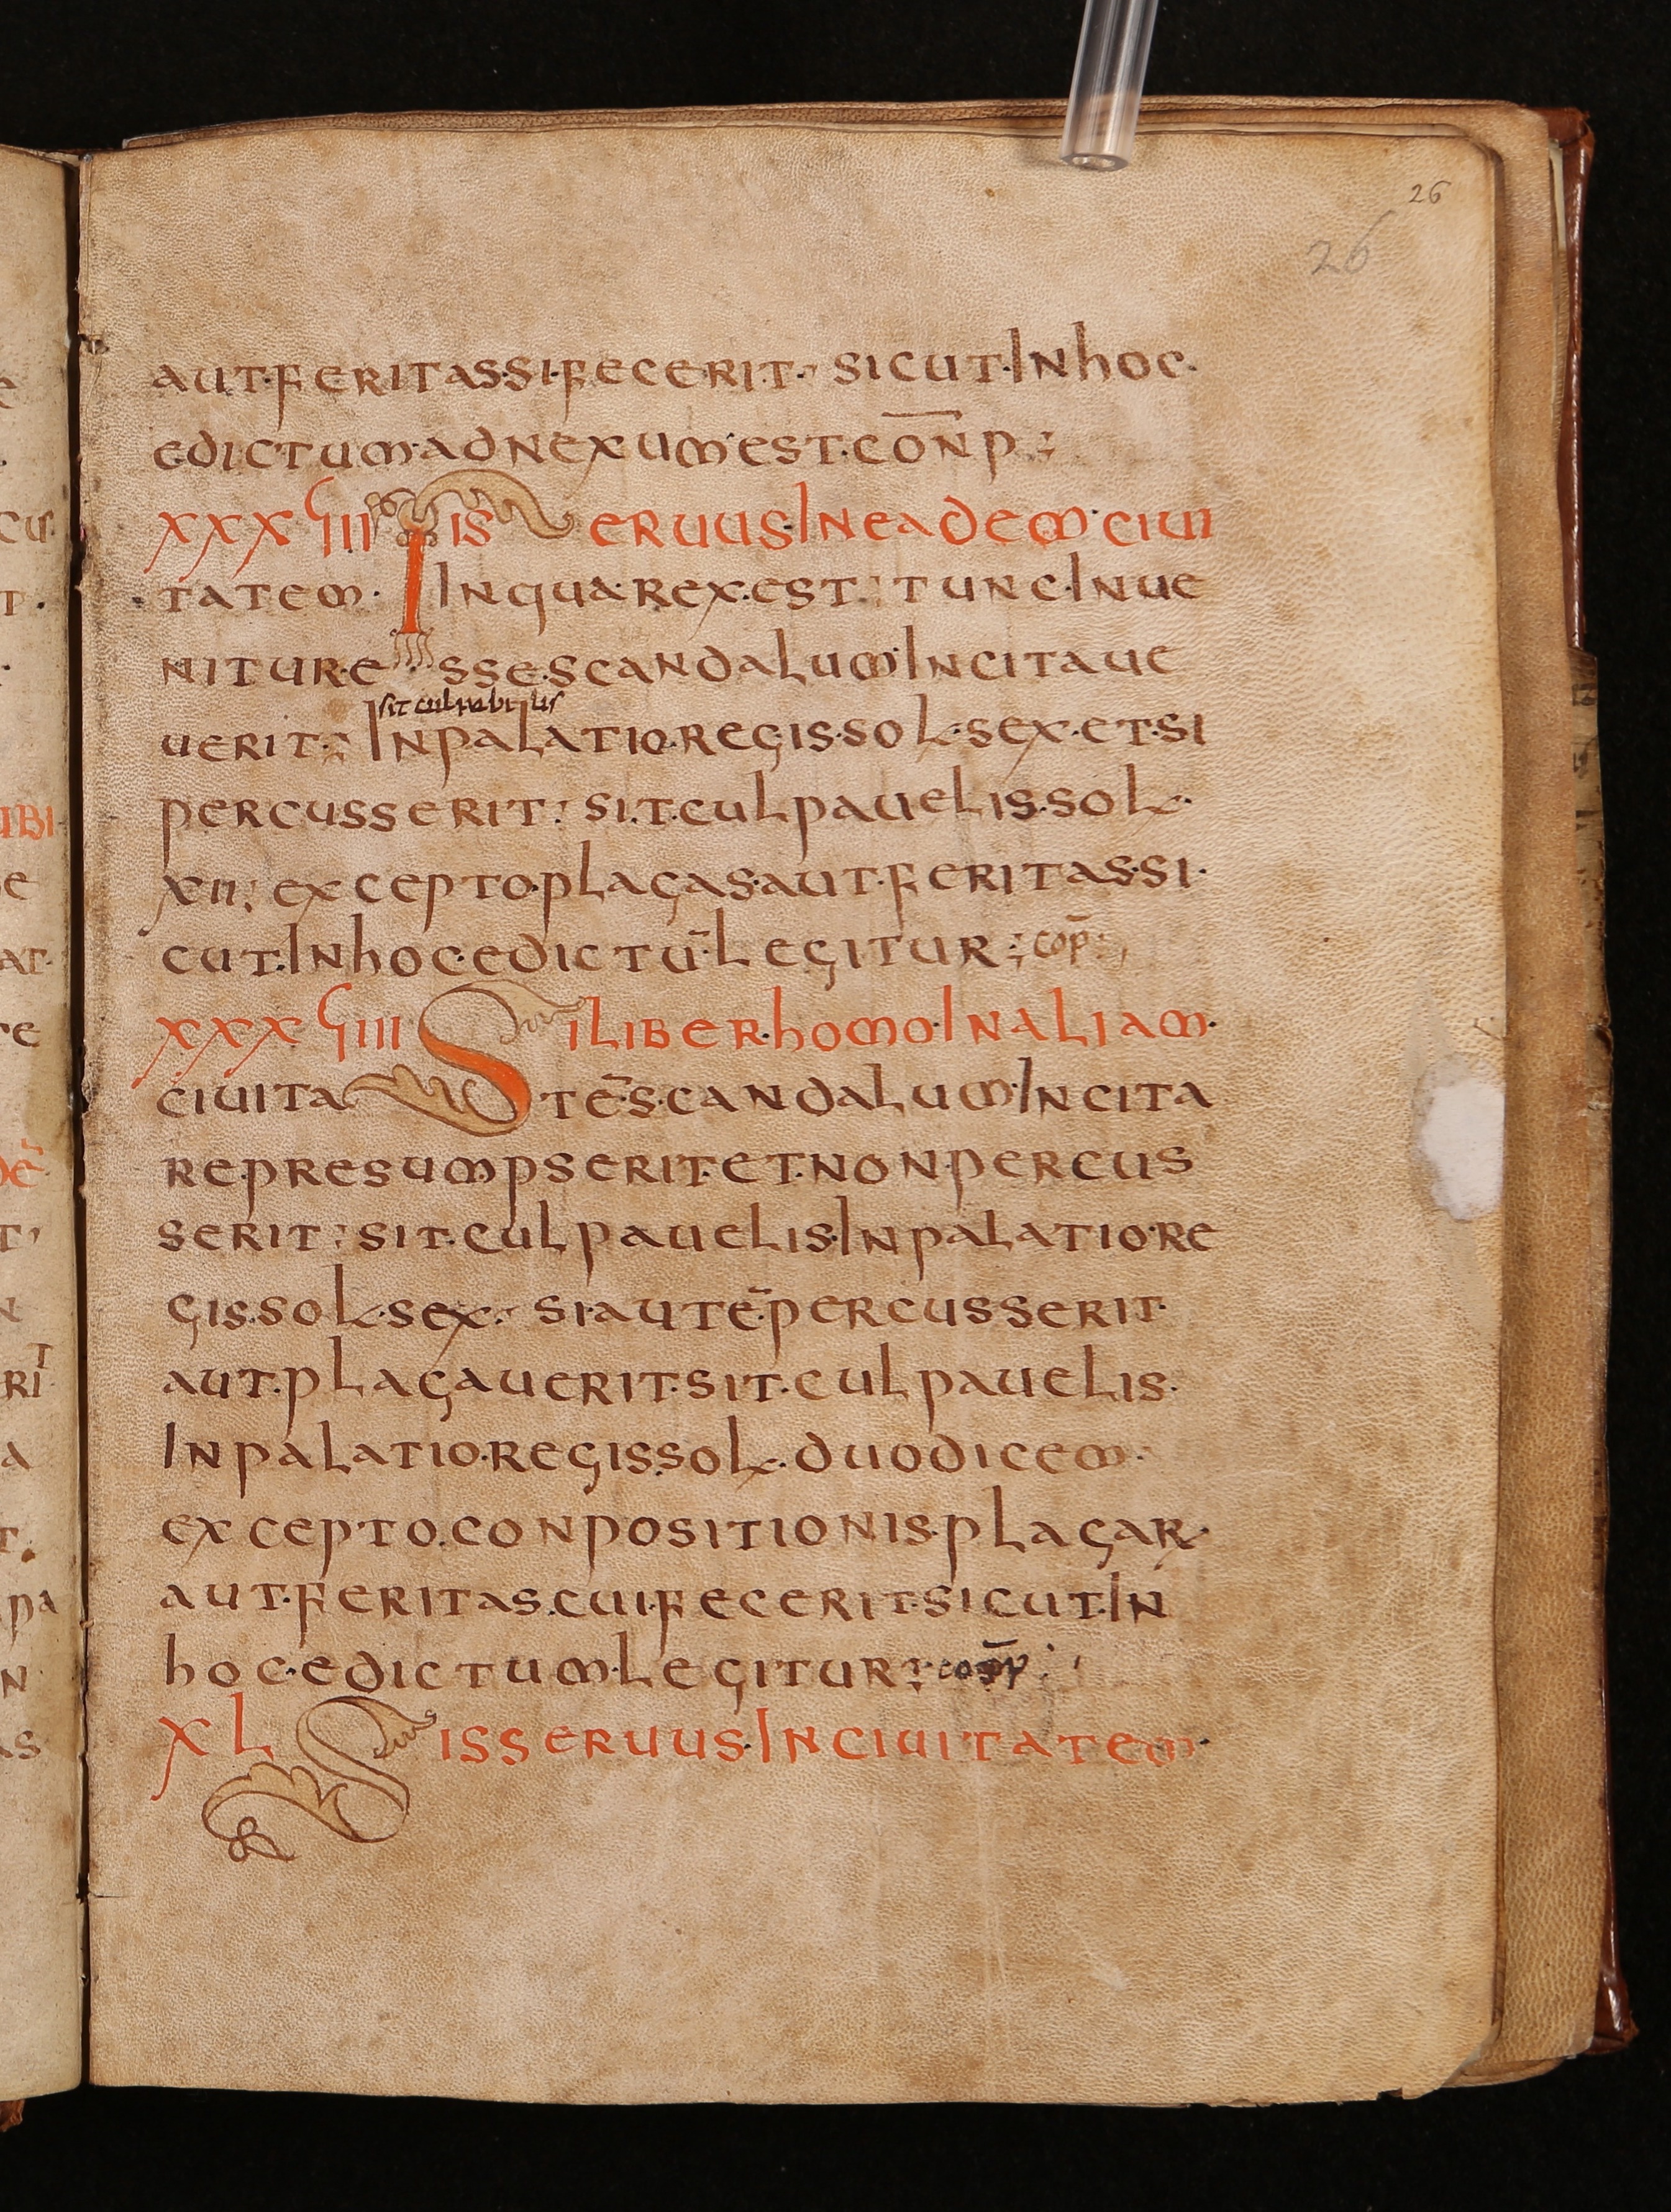 26
26
AUT·FERITAS·SI·FECERIT· SICUT·INHOC·
EDICTUM·ADNEXUM·EST·CON̄P·;
XXXϚIII IS ERUUS·INEADEM·CIUI
TATEM· INQUA·REX·EST: TUNC·INUE
NITUR·E SSE·SCANDALUM·INCITAUE
sit culpabilis
UERIT·: INPALATIO·REGIS·SOL·SEX·ET·SI
PERCUSSERIT: SI·T·CULPAUELIS·SOL·
XII; EXCEPTO·PLAGAS·AUT·FERITAS·SI·
CUT·INHOC·EDICTŪ·LEGITUR·; COP̄:,
XXXϚIIII SILIBER·HOMO·INALIAM·
CIUITA TĒ·SCANDALUM·INCITA
RE·PRESUMPSERIT·ET·NON·PERCUS
SERIT: SIT·CULPAUELIS·INPALATIO·RE
GIS·SOL·SEX·: SI·AUTĒ·PERCUSSERIT
AUT·PLAGAUERIT·SIT·CULPAUELIS·
INPALATIO·REGIS·SOL·DUODICEM·
EXCEPTO·CONPOSITIONIS·PLAGAR·
AUT·FERITAS·CUI·FECERIT·SICUT·IN
HOC·EDICTUM·LEGITUR:
XL SISSERUUS·INCIUITATEM·